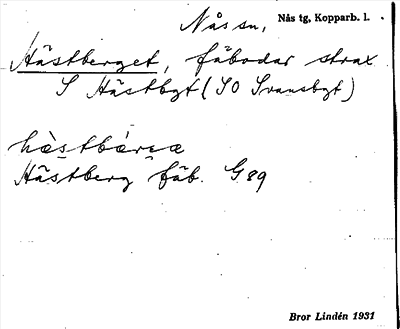 Nås sn, Nås tg, Kopparb. l.
Hästberget, fäbodar strax
S Hästbgt (SO Svansbgt)
hästbärjæ
Hästberg fäb. G 89
Bror Lindén 1931